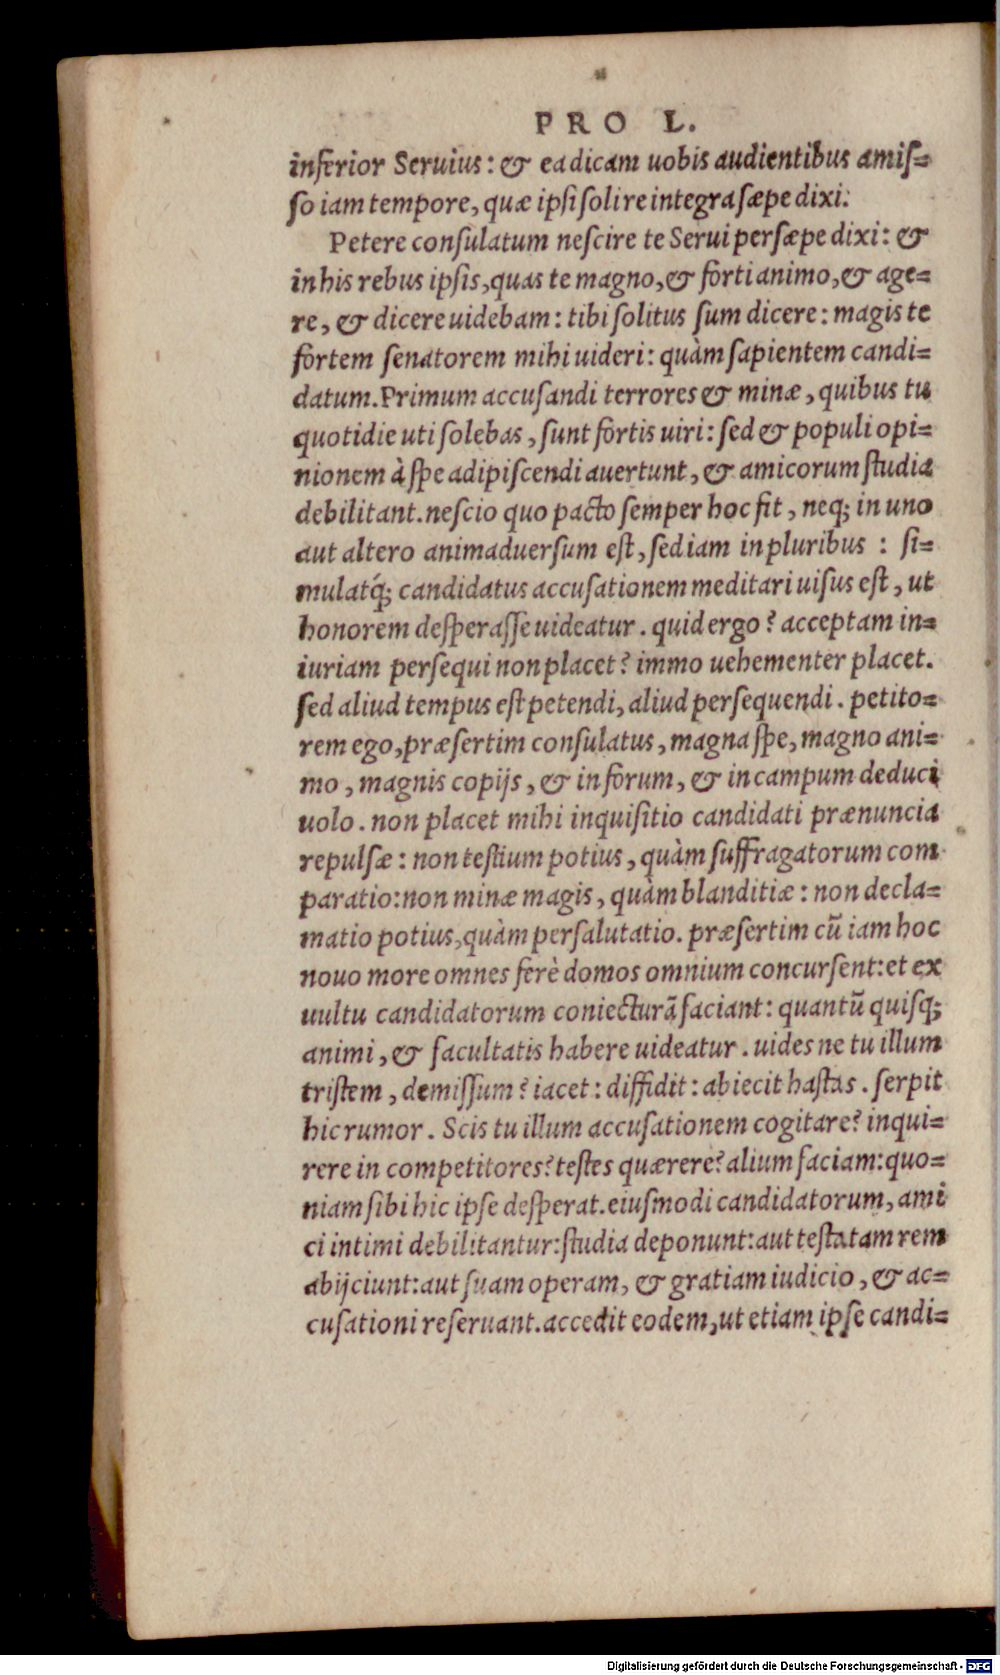 PRO L.
inferior Seruius: & ea dicam uobis audientibus amiſ=
ſo iam tempore, quæ ipſi ſoli re integra sæpe dixi.
Petere conſulatum neſcire te Serui perſæpe dixi: &
in his rebus ipſis, quas te magno, & forti animo, & age=
re, & dicere uidebam: tibi ſolitus ſum dicere: magis te
fortem ſenatorem mihi uideri: quàm ſapientem candi=
datum. Primum accuſandi terrores & minæ, quibus tu
quotidie uti ſolebas, ſunt fortis uiri: ſed & populi opi=
nionem à ſpe adipiſcendi auertunt, & amicorum ſtudia
debilitant. neſcio quo pacto ſemper hoc fit, neq; in uno
aut altero animaduerſum eſt, ſed iam in pluribus : ſi=
mulatq́; candidatus accuſationem meditari uiſus eſt, ut
honorem deſperaſſe uideatur. quid ergo? acceptam in=
iuriam perſequi non placet? immo uehementer placet.
ſed aliud tempus eſt petendi, aliud perſequendi. petito=
rem ego, præſertim conſulatus, magna ſpe, magno ani=
mo, magnis copijs, & in forum, & in campum deduci
uolo. non placet mihi inquiſitio candidati prænuncia
repulſæ: non teſtium potius, quàm ſuffragatorum com
paratio: non minæ magis, quàm blanditiæ: non decla=
matio potius, quàm perſalutatio. præſertim cũ iam hoc
nouo more omnes ferè domos omnium concurſent: et ex
uultu candidatorum coniecturã faciant: quantũ quiſq;
animi, & facultatis habere uideatur. uides ne tu illum
triſtem, demiſſum? iacet: diffidit: abiecit haſtas. ſerpit
hic rumor. Scis tu illum accuſationem cogitare? inqui=
rere in competitores? teſtes quærere? alium faciam: quo=
niam ſibi hic ipſe deſperat. eiuſmodi candidatorum, ami
ci intimi debilitantur: ſtudia deponunt: aut teſtatam rem
abijciunt: aut ſuam operam, & gratiam iudicio, & ac=
cuſationi reſeruant. accedit eodem, ut etiam ipſe candi=
Digitalisierung gefördert durch die Deutsche Forschungsgemeinschaft - DFG